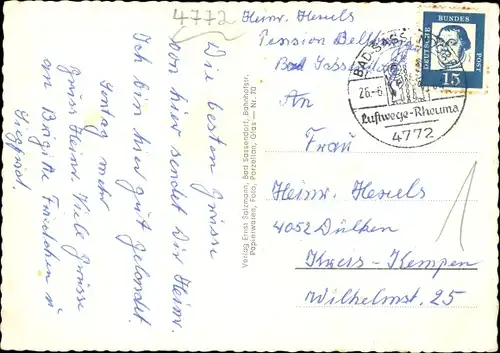 4772
Heinr. Hexels
Pension
Bad Sassendorf
BAD SASS
26.-6
Luftwege-Rheuma
4772
DEUTSCHE BUNDES POST
15
Die besten Grüsse
von hier sendet Dir Heinr.
Ich bin hier gut gelandet.
Sontag mehr
Gruss Heinr. Viele Grüsse
an Brigitte Friedchen u
Siegfried.
Verlag Ernst Salzmann, Bad Sassendorf, Bahnhofstr.
Papierwaren, Foto, Porzellan, Glas — Nr. 70
An
Frau
Heinr. Hexels
4052 Dülken
Kreis-Kempen
Wilhelmst. 25
1